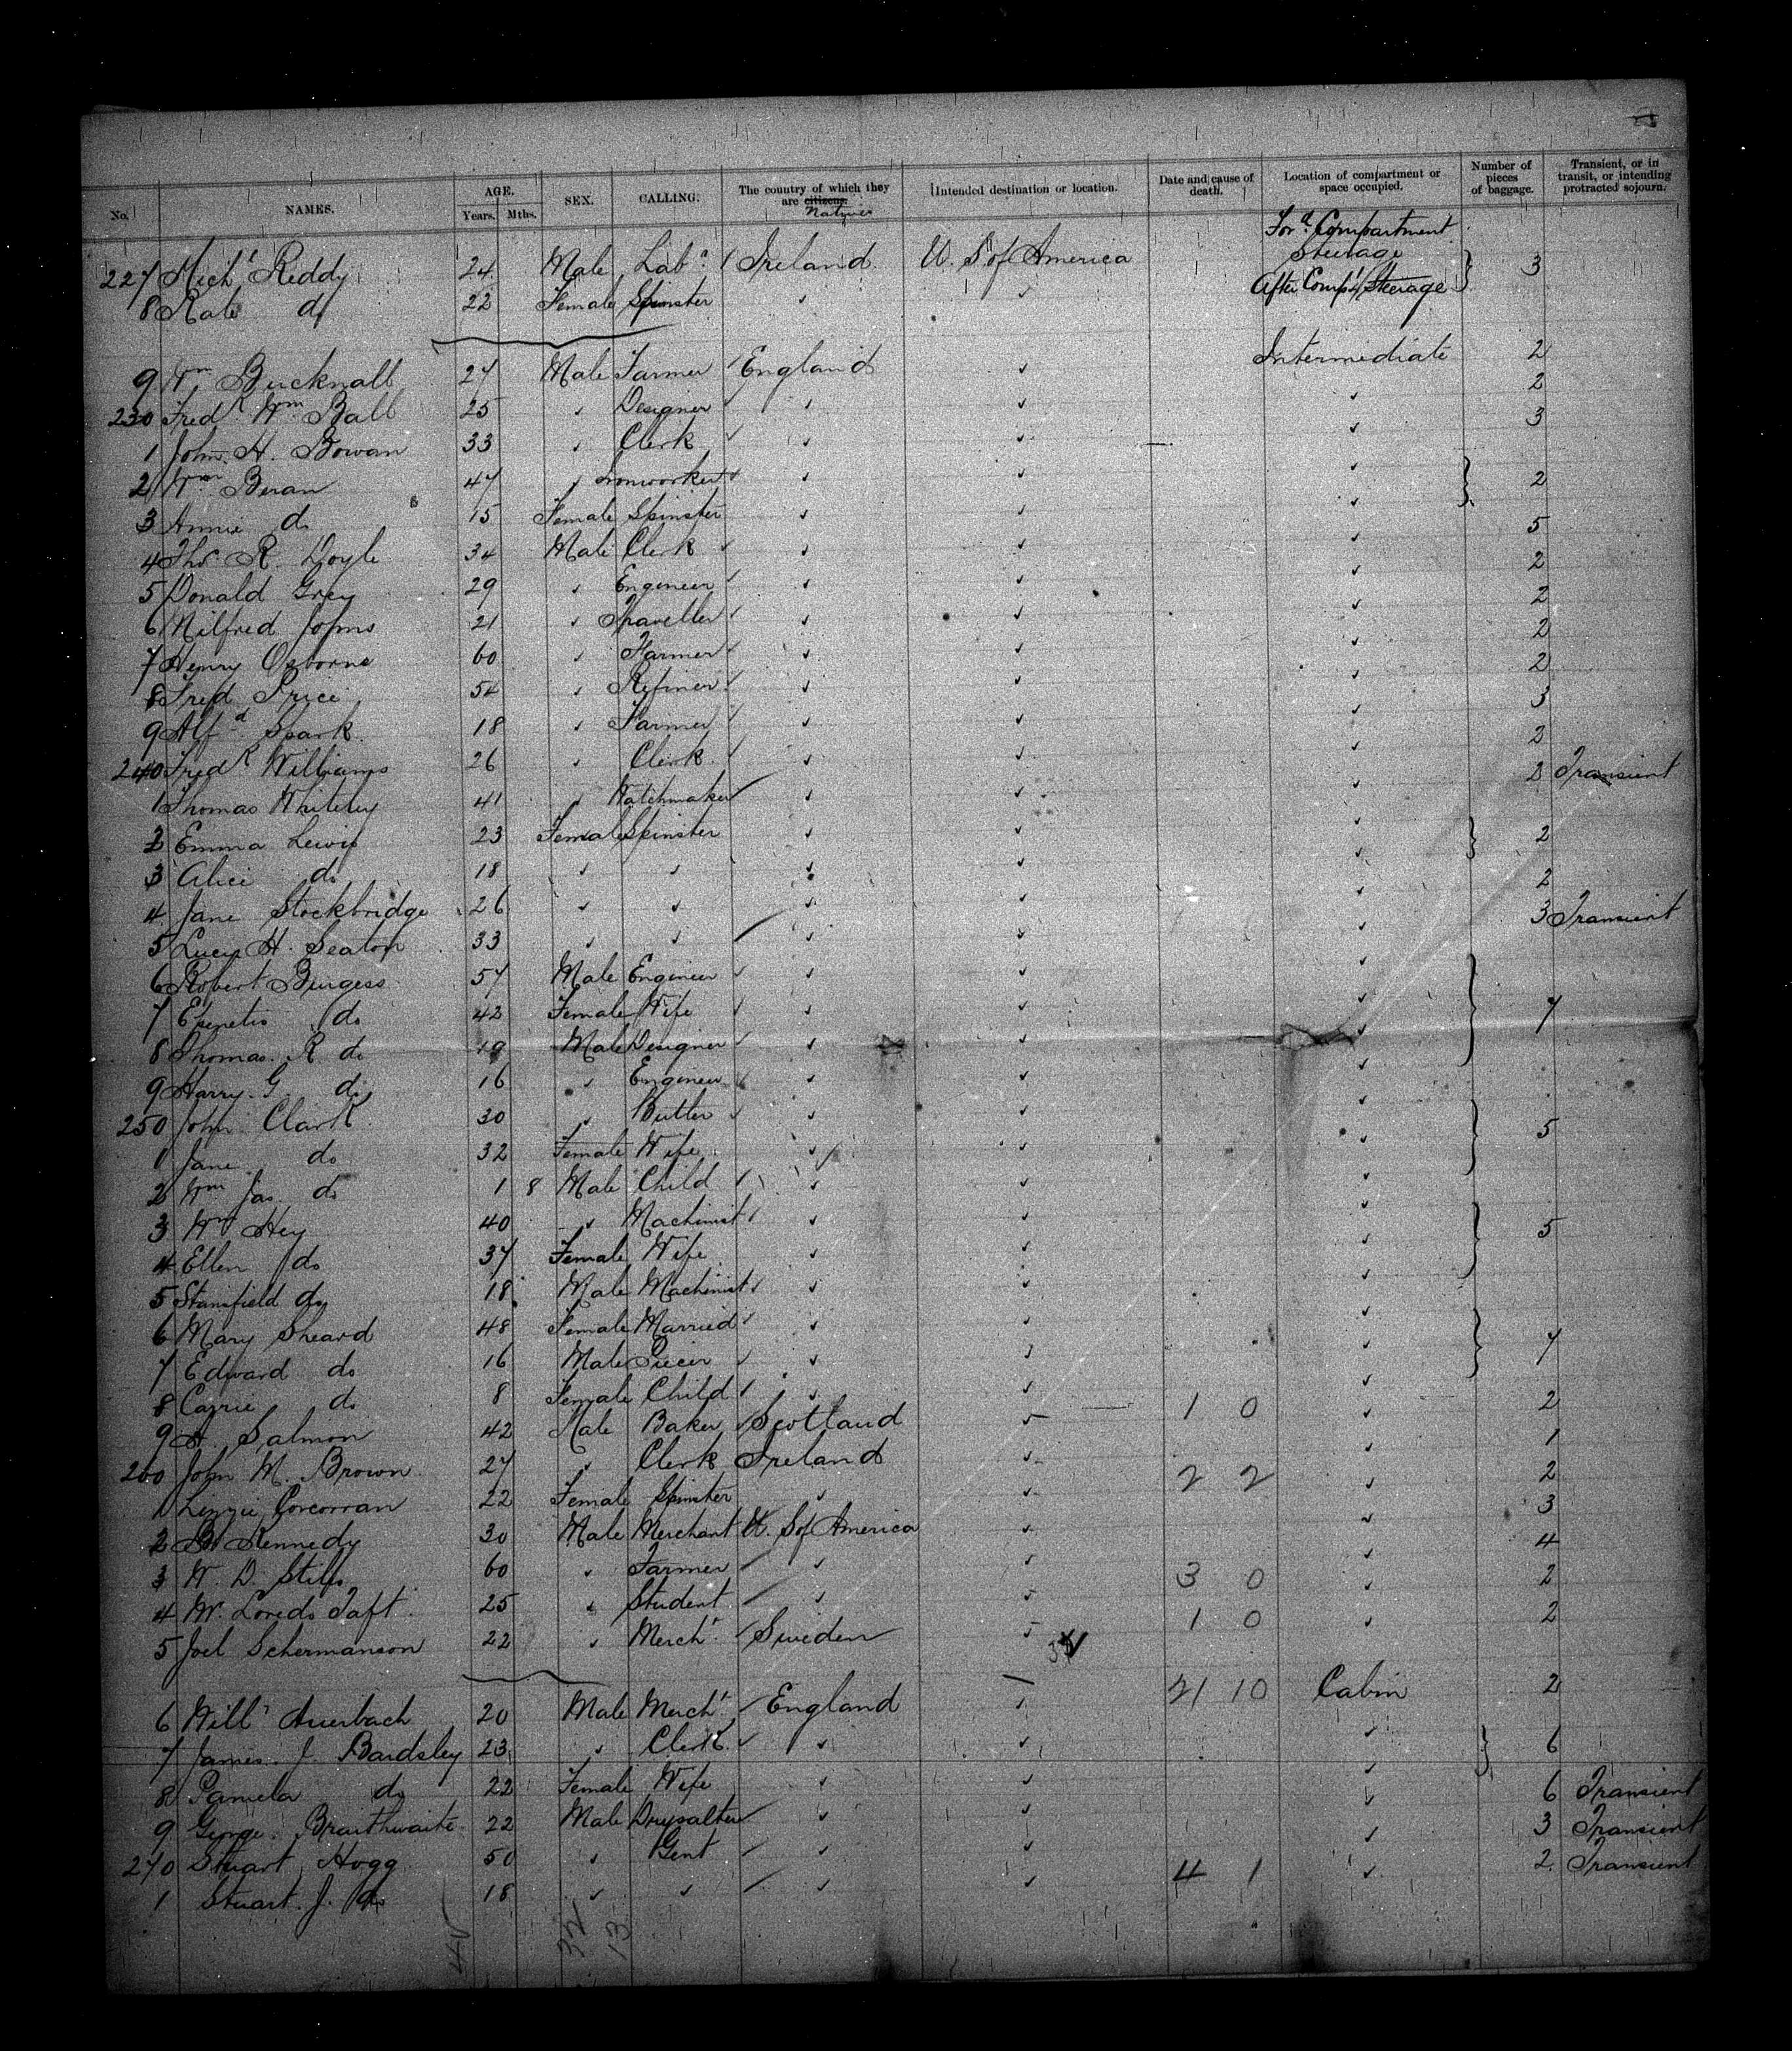 No. NAMES. AGE. Years. Mths. SEX. CALLING. The country of which they are citizens. Natives Intended destination or location. Date and cause of death. Location of compartment or space occupied. Number of pieces of baggage. Transient, or in transit, or intending protracted sojourn.
For'd Compartment
227 Mich'l Reddy 24 Male Lab'r Ireland U. S of America Steerage 3
8 Kate do 22 Female Spinster ✓ ✓ After Comp't Steerage
9 Wm Bucknall 27 Male Farmer England ✓ Intermediate 2
230 Fredk Wm Ball 25 ✓ Designer ✓ ✓ ✓ 2
1 John H. Bowan 33 ✓ Clerk ✓ ✓ ✓ 3
2 Wm Bevan 47 ✓ Ironworker ✓ ✓ ✓ 2
3 Annie do 15 Female Spinster ✓ ✓ ✓
4 Thos R. Doyle 34 Male Clerk ✓ ✓ ✓ 5
5 Donald Grey 29 ✓ Engineer ✓ ✓ ✓ 2
6 Wilfred Johns 21 ✓ Traveller ✓ ✓ ✓ 2
7 Henry Osborne 60 ✓ Farmer ✓ ✓ ✓ 2
8 Fred Price 54 ✓ Refiner ✓ ✓ ✓ 2
9 Alfd Spark 18 ✓ Farmer ✓ ✓ ✓ 3
240 Fredk Williams 26 ✓ Clerk ✓ ✓ ✓ 2
1 Thomas Whiteley 41 ✓ Watchmaker ✓ ✓ ✓ 2 Transient
2 Emma Lewis 23 Female Spinster ✓ ✓ ✓ 2
3 Alice do 18 ✓ ✓ ✓ ✓ ✓
4 Jane Stockbridge 26 ✓ ✓ ✓ ✓ ✓ 2
5 Lucy H. Seaton 33 ✓ ✓ ✓ ✓ ✓ 3 Transient
6 Robert Burgess 57 Male Engineer ✓ ✓ ✓ 7
7 do 42 Female Wife ✓ ✓ ✓
8 Thomas. R do 19 Male Designer ✓ ✓ ✓
9 Harry. G do 16 ✓ Engineer ✓ ✓ ✓
250 John Clark 30 ✓ Butler ✓ ✓ ✓ 5
1 Jane do 32 Female Wife ✓ ✓ ✓
2 Wm Jas. do 1 8 Male Child ✓ ✓ ✓
3 Wm Hey 40 ✓ Machinist ✓ ✓ ✓ 5
4 Ellen do 37 Female Wife ✓ ✓ ✓
5 Stansfield do 18 Male Machinist ✓ ✓ ✓
6 Mary Sheard 48 Female Married ✓ ✓ ✓ 7
7 Edward do 16 Male Piecer ✓ ✓ ✓
8 Carrie do 8 Female Child ✓ ✓ ✓
9 A. Salmon 42 Male Baker Scotland ✓ 1 0 ✓ 2
260 John M. Brown 27 ✓ Clerk Ireland ✓ ✓ 1
1 Lizzie Corcorran 22 Female Spinster ✓ ✓ 2 2 ✓ 2
2 Kennedy 30 Male Merchant U. S of America ✓ ✓ 3
3 W. D. Stiles 60 ✓ Farmer ✓ ✓ ✓ 4
4 W. Loredo Taft 25 ✓ Student ✓ ✓ 3 0 ✓ 2
5 Joel Schermanson 22 ✓ Merch't Sweden ✓ 1 0 ✓ 2
6 Will'm Auerbach 20 Male Merch't England ✓ 21 10 Cabin 2
7 James. J Bardsley 23 ✓ Clerk ✓ ✓ ✓ 6
8 Pamela do 22 Female Wife ✓ ✓ ✓
9 George. Braithwaite 22 Male Drysalter ✓ ✓ ✓ 6 Transient
270 Stuart Hogg 50 ✓ Gent ✓ ✓ ✓ 3 Transient
1 Stuart. J. do 18 ✓ ✓ ✓ ✓ 4 1 ✓ 2 Transient
45 32 13